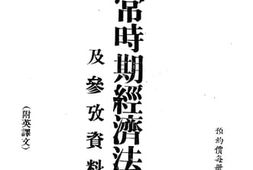 預約價每册
常時期經濟法
及參攷資料
(附英譯文)